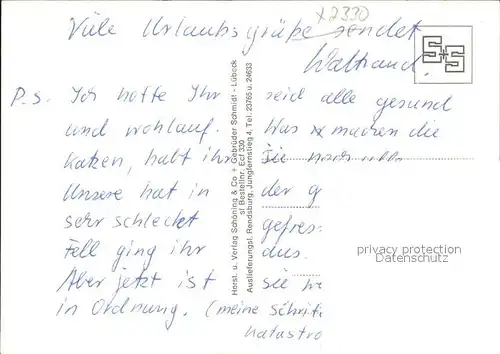 x 2330
Viele Urlaubsgrüße sendet
Waltraud.
P.S. Ich hoffe Ihr seid alle gesund
und wohlauf. Was machen die
Katzen, habt ihr sie noch alle
Unsere hat in der
sehr schlecht gefres-
Fell ging ihr aus.
Aber jetzt ist sie
in Ordnung. (meine Schrift
katastro
S+S
Herst. u. Verlag Schöning & Co + Gebrüder Schmidt - Lübeck
sf Bestellnr. Ecf 330
Auslieferungsl. Rendsburg, Jungfernstieg 4, Tel. 23765 u. 24633
privacy protection
Datenschutz